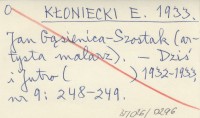 KŁONIECKI E. 1933.
Jan Gąsienica-Szostak (ar-
tysta malarz). – Dziś
i Jutro ( ) 1932-1933,
nr 9: 248-249.